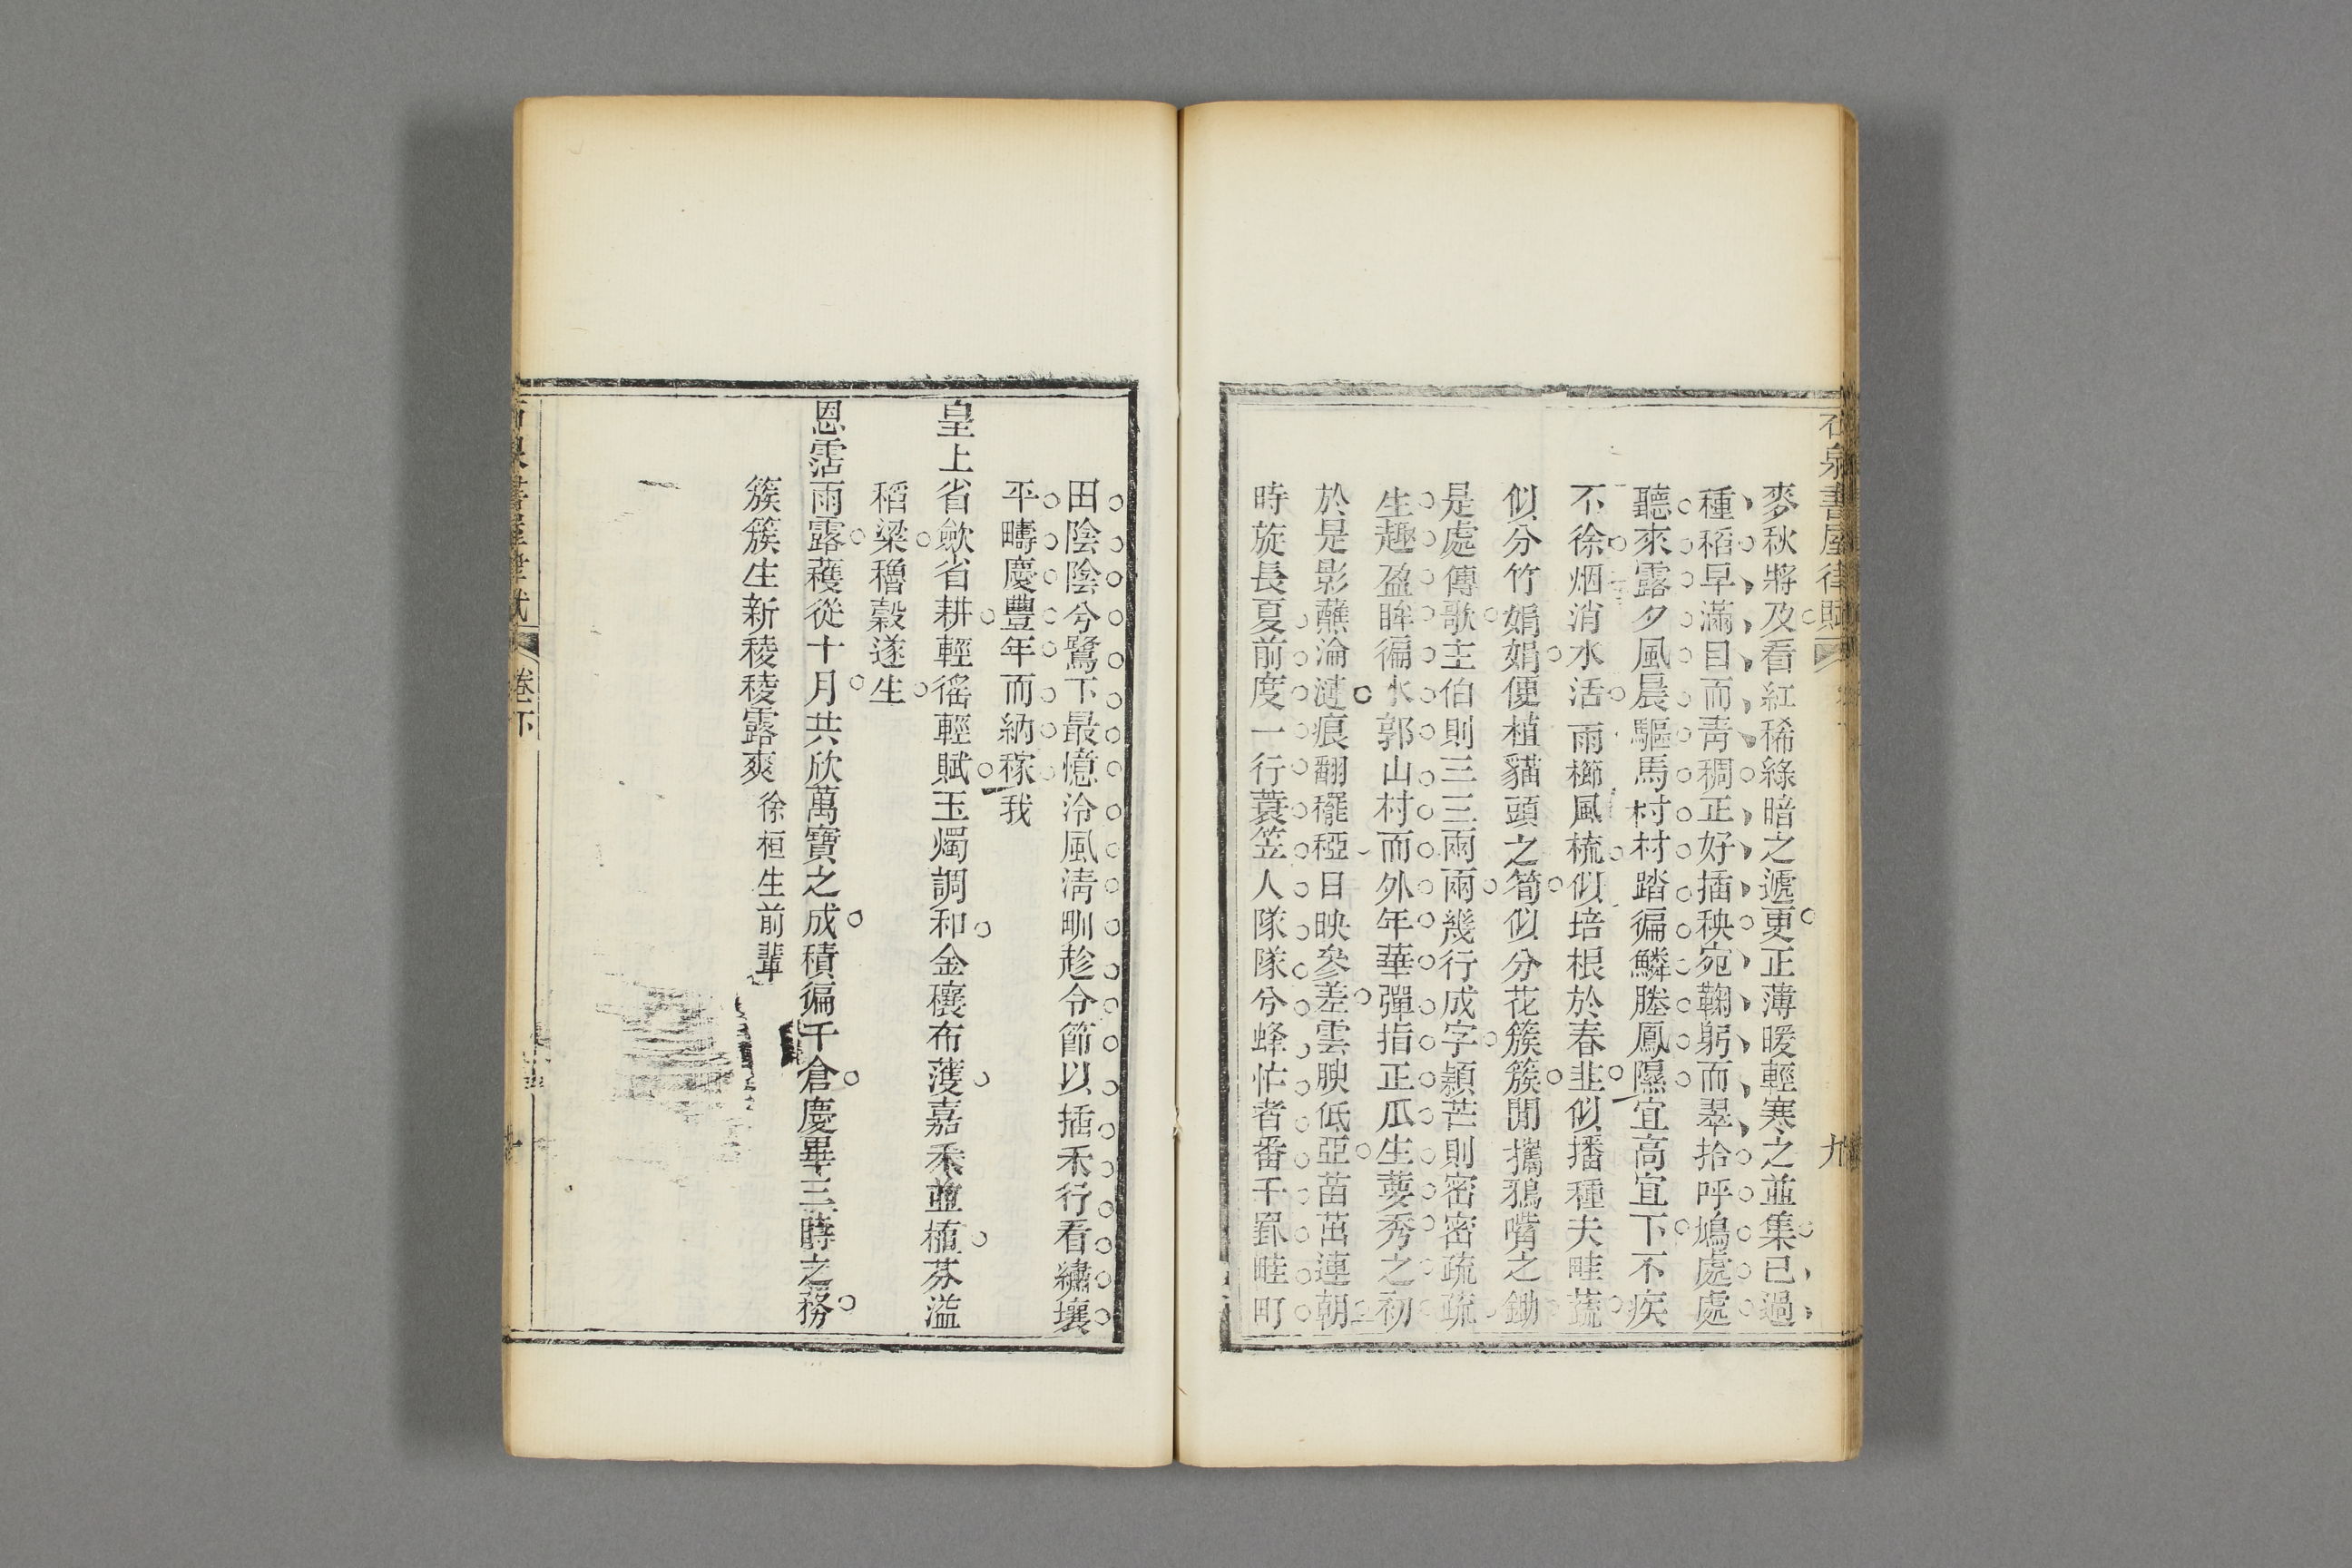 石泉書屋律賦
九
麥秋將及看紅稀綠暗之遞更正薄暖輕寒之並集已過
種稻早滿目而靑稠正好插秧宛鞠躬而翠拾呼鳩處處
聽來露夕風晨驅馬村村踏徧鱗塍鳳隰宜高宜下不疾
不徐烟消水活雨櫛風梳似培根於春韭似播種夫畦蔬
似分竹娟娟便植貓頭之筍似分花簇簇閒攜鴉嘴之鋤
是處傳歌主伯則三三兩兩幾行成字穎芒則密密疏疏
生趣盈眸徧水郭山村而外年華彈指正瓜生葽秀之初
於是影蘸淪漣痕翻䆉稏日映參差雲腴低亞苗茁連朝
時旋長夏前度一行蓑笠人隊隊兮蜂忙者番千罫畦町
田陰陰兮鷺下最憶泠風淸甽趁令節以插禾行看繡壤
平疇慶豐年而納稼我
皇上省歛省耕輕徭輕賦玉燭調和金穰布濩嘉禾並植芬溢
稻粱穜穀遂生
恩霑雨露穫從十月共欣萬寶之成積徧千倉慶畢三蒔之務
簇簇生新稜稜露爽 徐桓生前輩
石泉書屋律賦
卷下